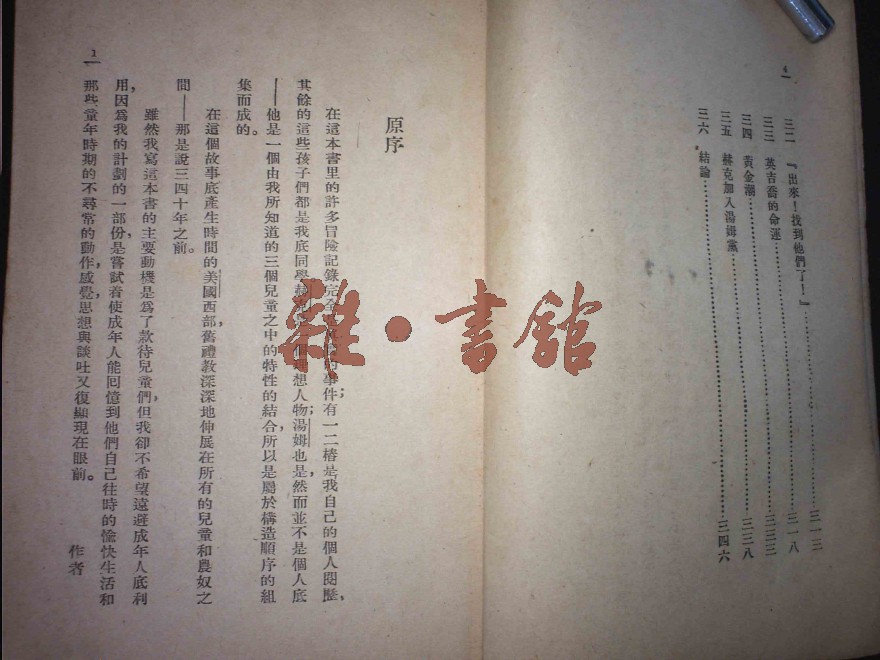 4
三二 『出來!找到他們了!』……三一三
三三 英吉喬的命運……三一八
三四 黃金潮……三三三
三五 赫克加入湯姆黨……三三八
三六 結論……三四六
原序
在這本書里的許多冒險記錄完全事件有一二樁是我自己的個人閱歷,
其餘的這些孩子們都是我底同學想人物;湯姆也是,然而並不是個人底
——他是一個由我所知道的三個兒童之中的特性的結合,所以是屬於構造順序的組
集而成的。
在這個故事底產生時間的美國西部,舊禮教深深地伸展在所有的兒童和農奴之
間——那是說三四十年之前。
雖然我寫這本書的主要動機是爲了款待兒童們,但我卻不希望遠避成年人底利
用,因爲我的計劃的一部份,是嘗試着使成年人能回憶到他們自己往時的愉快生活和
那些童年時期的不尋常的動作,感覺,思想與談吐又復顯現在眼前。
作者
1
雜·書館